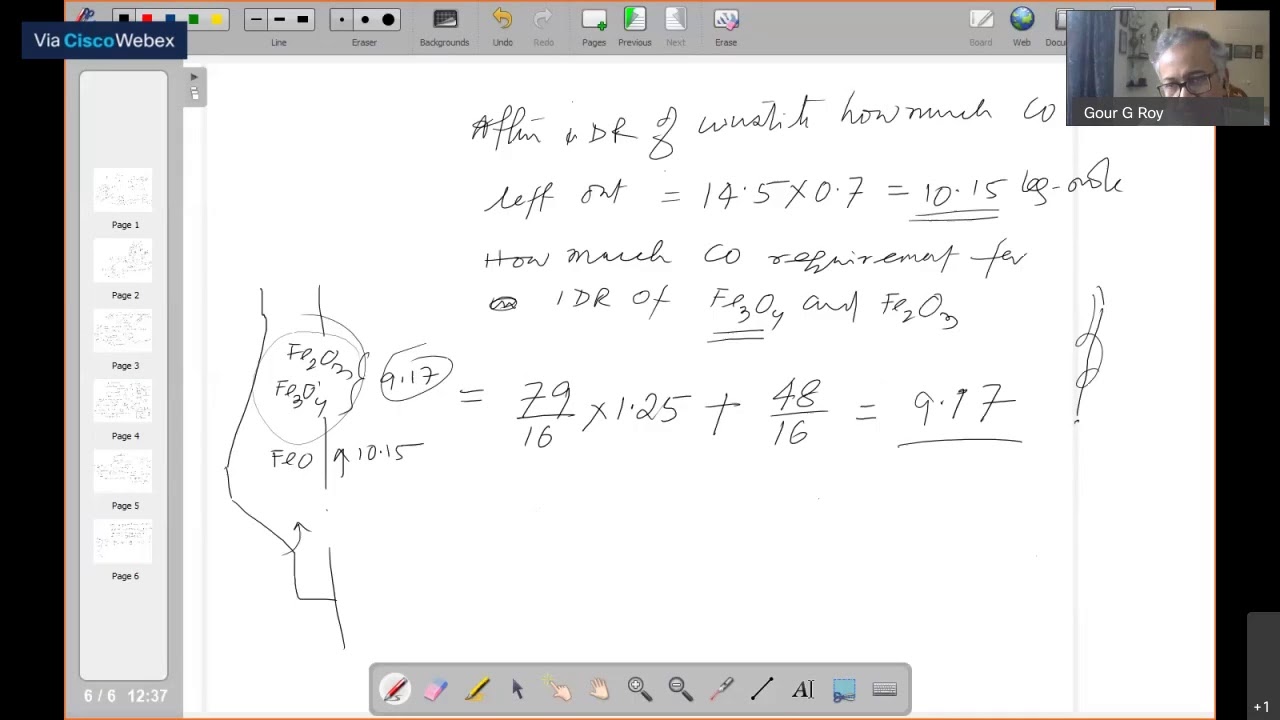 Via Cisco Webex
Line
Eraser
Backgrounds
Undo
Redo
Pages
Previous
Next
Erase
Board
Web
Docu
Gour G Roy
After IDR of wustite how much CO
left out = 14.5 × 0.7 = 10.15 kg-mole
How much CO requirement for
IDR of Fe3O4 and Fe2O3
= 79/16 × 1.25 + 48/16 = 9.17
Fe2O3
Fe3O4
9.17
FeO
10.15
Page 1
Page 2
Page 3
Page 4
Page 5
Page 6
6 / 6 12:37
AI
+1